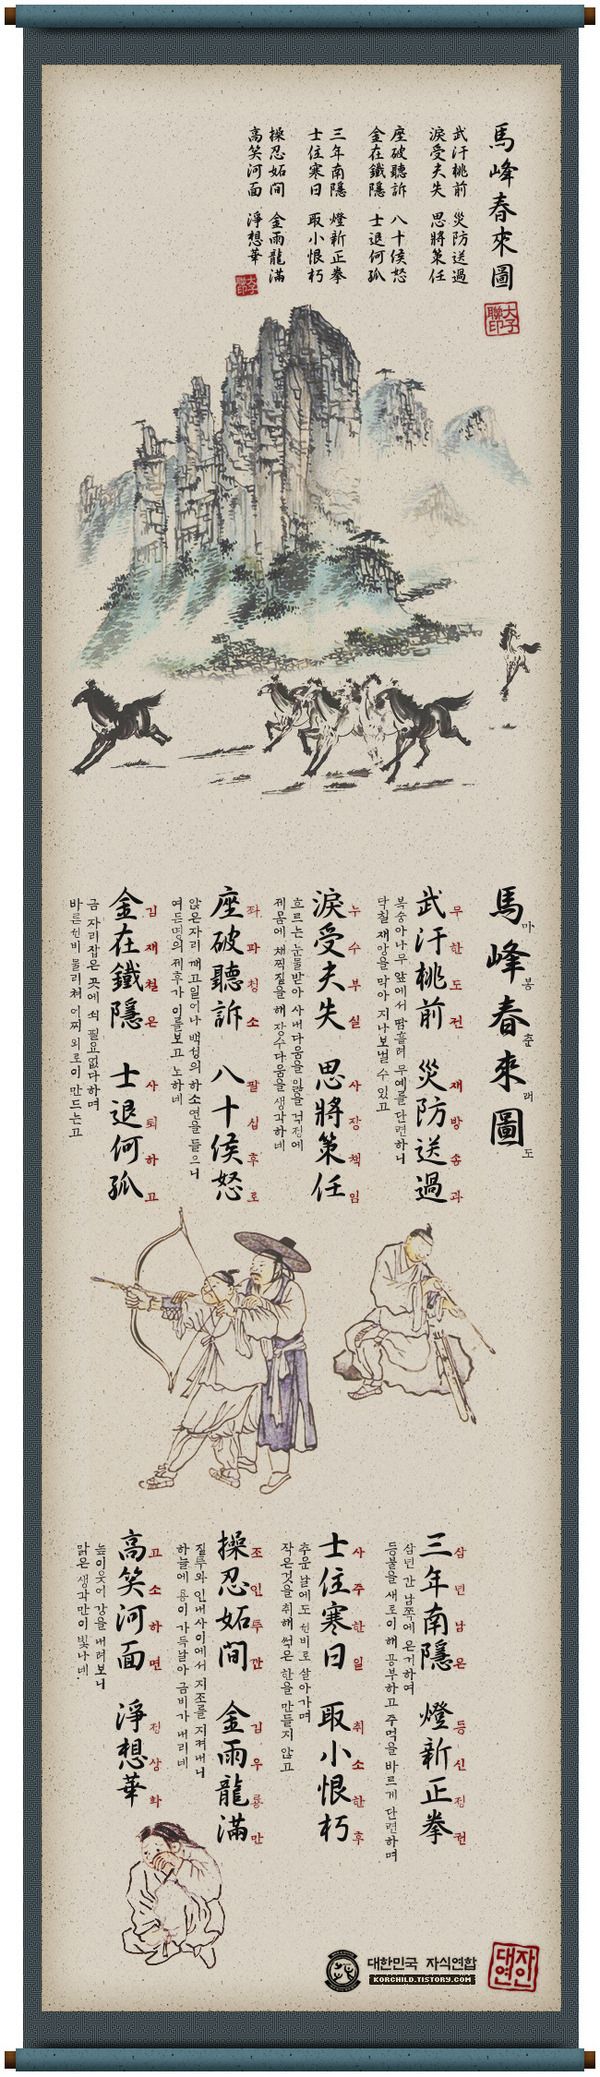 馬峰春來圖
武汗桃前 災防送過
淚受夫失 思將策任
座破聽訴 八十侯怒
金在鐵隱 士退何孤
三年南隱 燈新正拳
士住寒日 取小恨朽
操忍妬間 金雨龍滿
高笑河面 淨想華
馬峰春來圖
마봉춘래도
武汗桃前 災防送過
무한도전 재방송과
복숭아나무 앞에서 땀흘려 무예를 단련하니
닥칠 재앙을 막아 지나보낼 수 있고
淚受夫失 思將策任
누수부실 사장책임
흐르는 눈물받아 사내다움을 잃을 걱정에
제몸에 채찍질을 해 장수다움을 생각하네
座破聽訴 八十侯怒
좌파청소 팔십후로
앉은자리 깨고 일어나 백성의 하소연을 들으니
여든명의 제후가 이를보고 노하네
金在鐵隱 士退何孤
김재철은 사퇴하고
금 자리잡은 곳에 쇠 필요없다하며
바른선비 물리쳐 어찌 외로이 만드는고
三年南隱 燈新正拳
삼년남은 등신정권
삼년 간 남쪽에 은거하여
등불을 새로이해 공부하고 주먹을 바르게 단련하며
士住寒日 取小恨朽
사주한일 취소한후
추운 날에도 선비로 살아가며
작은것을 취해 썩은 한을 만들지 않고
操忍妬間 金雨龍滿
조인투간 김우룡만
질투와 인내사이에서 지조를 지켜내니
하늘에 용이 가득날아 금비가 내리네
高笑河面 淨想華
고소하면 정상화
높이웃어 강을 내려보니
맑은 생각만이 빛나네.
대한민국 자식연합
KORCHILD.TISTORY.COM